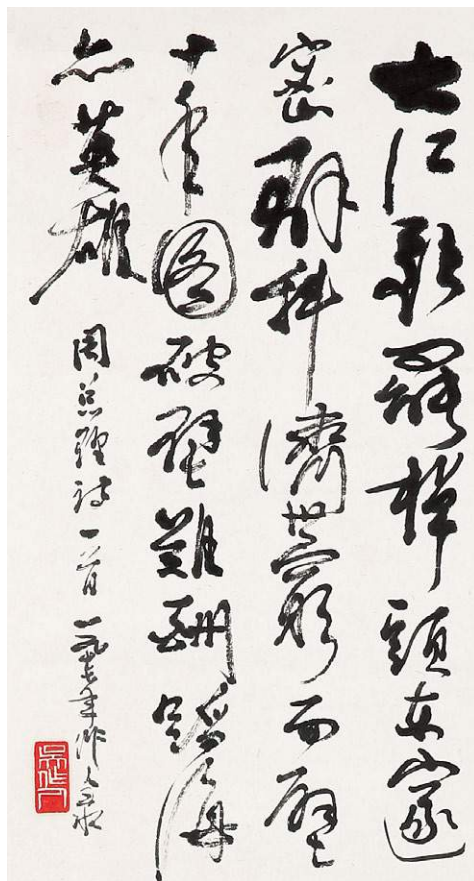 大江歌罷掉頭東邃
密群科濟世窮面壁
十年图破壁難酬蹈海
亦英雄
周总理诗一首 作人